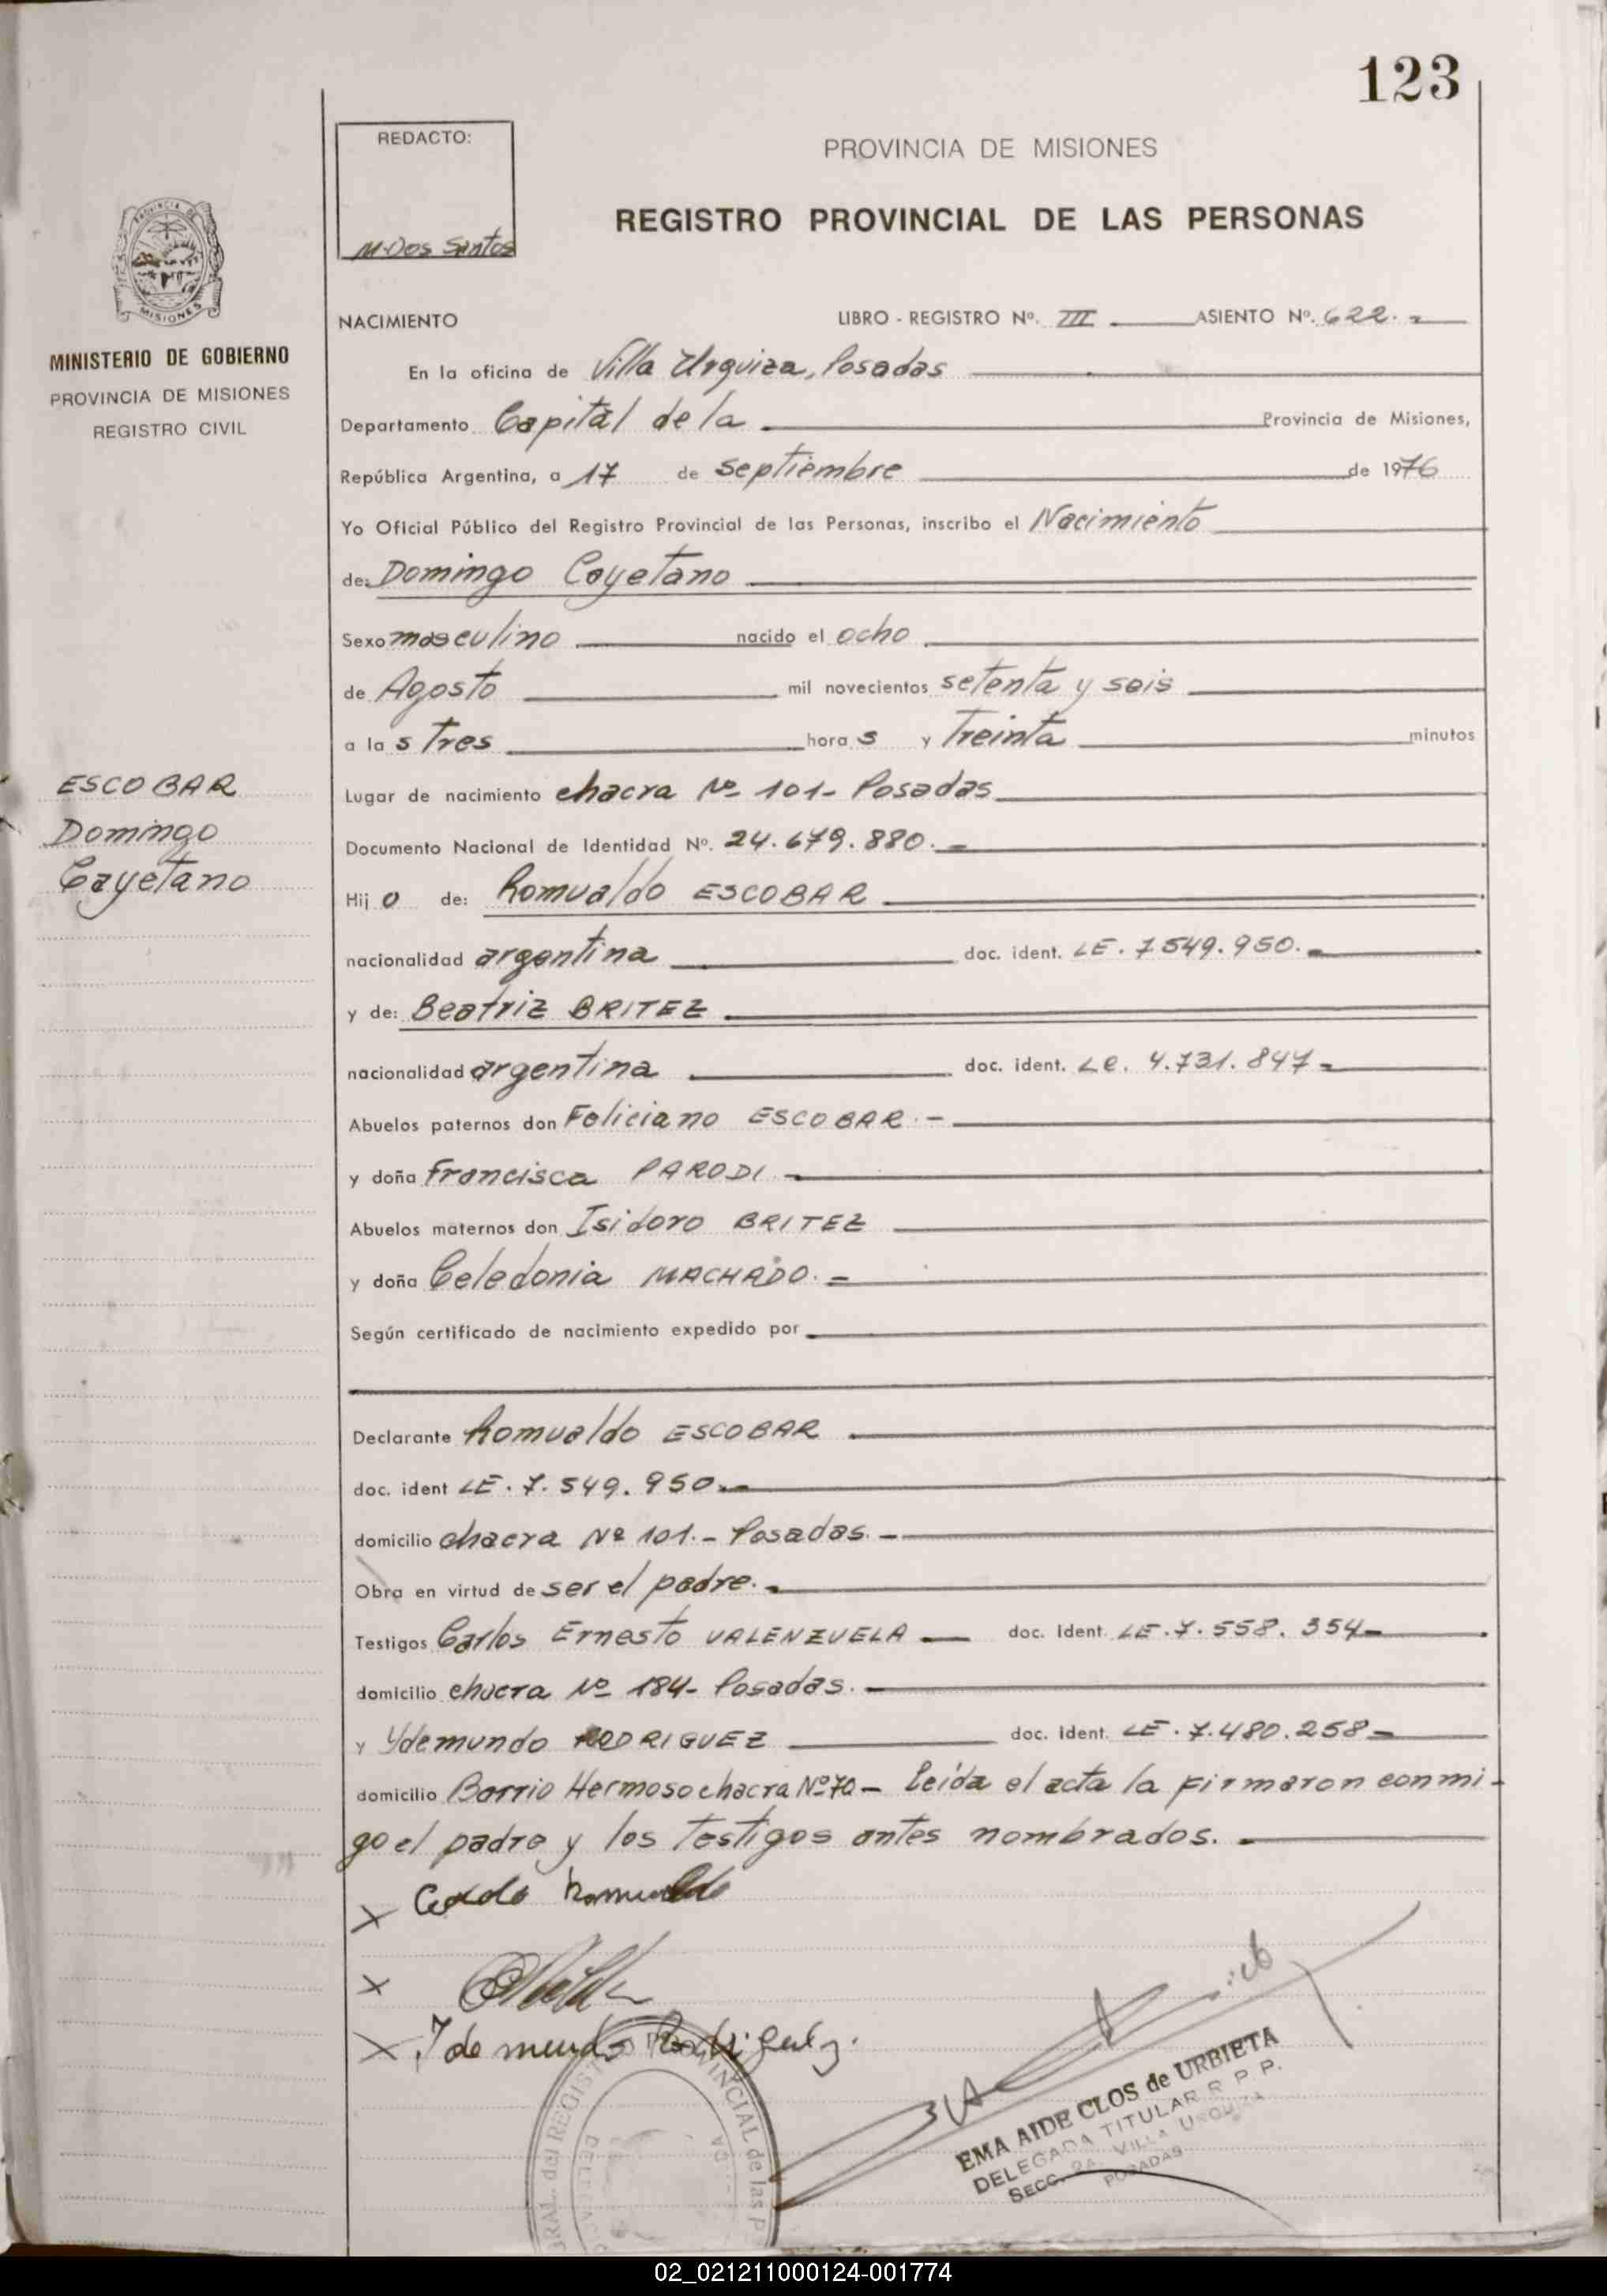 123
REDACTO:
M. Dos Santos
PROVINCIA DE MISIONES
REGISTRO PROVINCIAL DE LAS PERSONAS
PROVINCIA DE
MISIONES
MINISTERIO DE GOBIERNO
PROVINCIA DE MISIONES
REGISTRO CIVIL
NACIMIENTO LIBRO - REGISTRO Nº. III ASIENTO Nº. 622.-
En la oficina de Villa Urquiza, Posadas
Departamento Capital de la Provincia de Misiones,
República Argentina, a 17 de septiembre de 1976
Yo Oficial Público del Registro Provincial de las Personas, inscribo el Nacimiento
de: Domingo Cayetano
Sexo masculino nacido el ocho
de Agosto mil novecientos setenta y seis
a la s tres hora s y Treinta minutos
Lugar de nacimiento chacra Nº 101- Posadas
Documento Nacional de Identidad Nº. 24.679.880.-
Hij o de: Romualdo ESCOBAR
nacionalidad argentina doc. ident. LE. 7.549.950.-
y de: Beatriz BRITEZ
nacionalidad argentina doc. ident. LC. 4.731.847-
Abuelos paternos don Feliciano ESCOBAR.-
y doña Francisca PARODI -
Abuelos maternos don Isidoro BRITEZ
y doña Celedonia MACHADO.-
Según certificado de nacimiento expedido por
Declarante Romualdo ESCOBAR
doc. ident LE. 7.549.950.-
domicilio chacra Nº 101.- Posadas.-
Obra en virtud de ser el padre.-
Testigos Carlos Ernesto VALENZUELA doc. Ident. LE.7.558.354-
domicilio chacra Nº 184- Posadas.-
y Ydemundo RODRIGUEZ doc. Ident. LE.7.480.258-
domicilio Barrio Hermoso chacra Nº 70- Leída el acta la firmaron conmi-
go el padre y los testigos antes nombrados.-
ESCOBAR
Domingo
Cayetano
X Romualdo
X
X Ydemundo Rodriguez.
GRAL. del REGISTRO PROVINCIAL de las P
EMA AIDE CLOS de URBIETA
DELEGADA TITULAR R P P.
SECC. 2A. VILLA URQUIZA
POSADAS
02_021211000124-001774